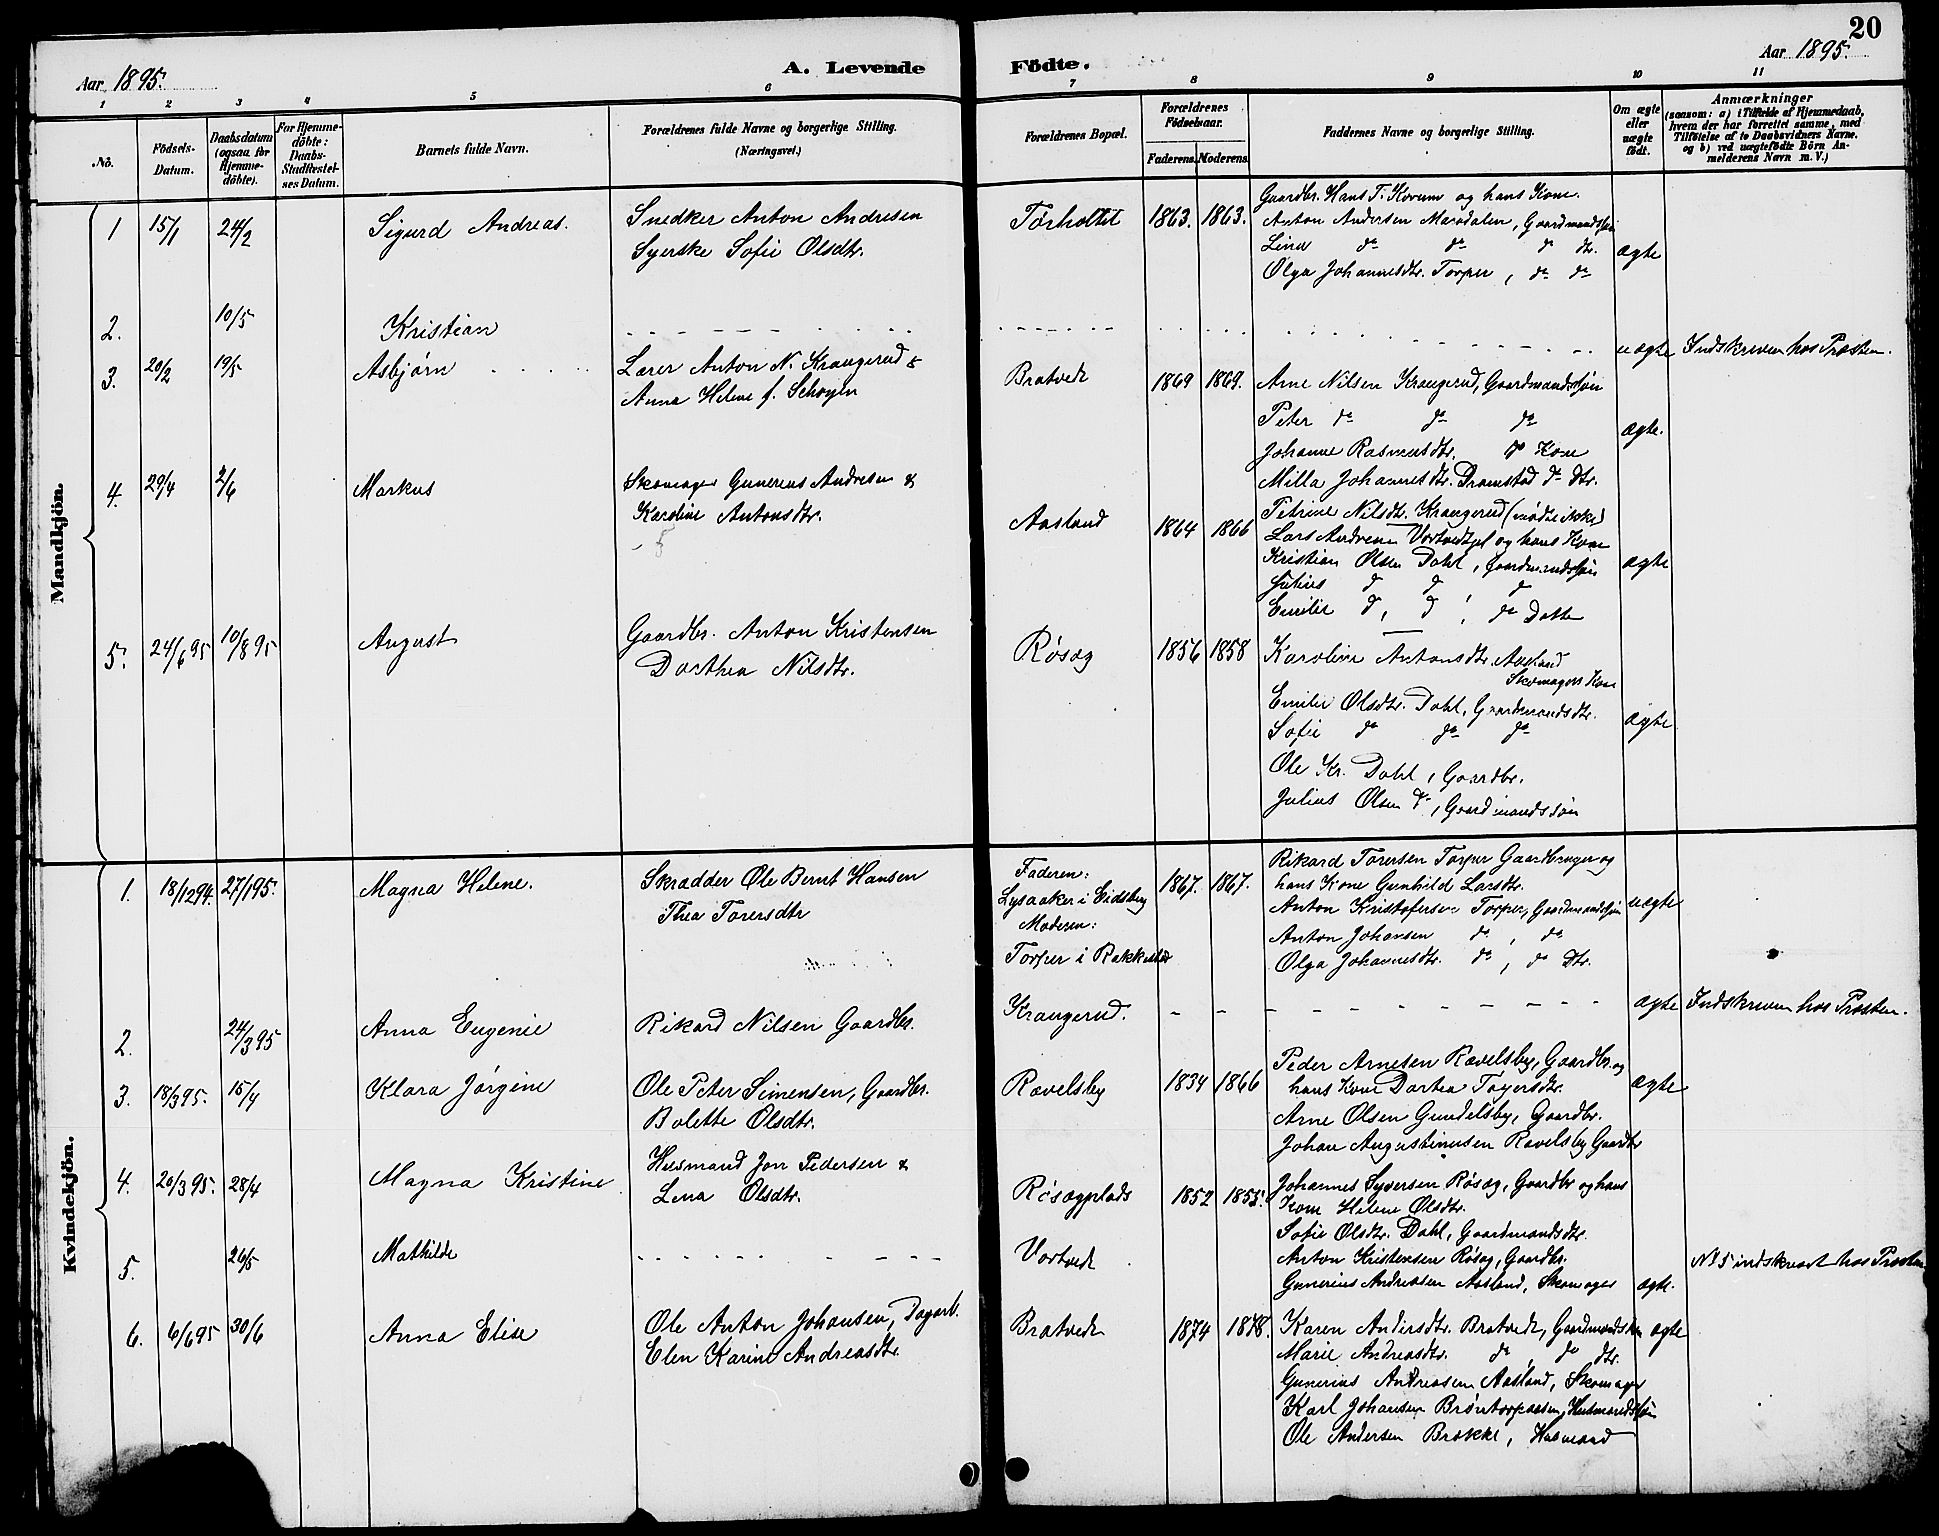 20
Aar 1895.
A. Levende Födte.
Aar 1895.
1 2 3 4 5 6 7 8 9 10 11
No.
Födsels-Datum.
Daabsdatum (ogsaa for Hjemme-döbte).
For Hjemme-döbte: Daabs-Stadfæstel-ses Datum.
Barnets fulde Navn.
Forældrenes fulde Navne og borgerlige Stilling.
(Næringsvei.)
Forældrenes Bopæl.
Forældrenes Födselsaar.
Faderens. Moderens.
Faddernes Navne og borgerlige Stilling.
Om ægte eller uægte födt.
Anmærkninger
(saasom: a) i Tilfælde af Hjemmedaab, hvem der har forrettet samme, med Tilföielse af to Daabsvidners Navne. og b) ved uægtefödte Börn An-melderens Navn m. V.)
Mandkjön.
1 15/1 24/2 Sigurd Andreas.
Snedker Anton Andresen
Syerske Sofie Olsdtr.
Tørholtet 1863. 1863.
Gaardbr. Hans T. Kovum og hans Kone.
Anton Andersen Masdalen, Gaardmandssøn
Lina do do do dtr.
Olga Johannesdtr. Torper, do do
ægte
2. 10/5 Kristian
uægte Indskreven hos Præsten.
3. 20/2 19/5 Asbjørn
Lærer Anton N. Kraugerud &
Anna Helene f. Schøyen
Bratvedt 1869 1869.
Arne Nilsen Kraugerud, Gaardmandssøn
Peter do do do
Johanne Rasmusdtr. do Kone
Milla Johannesdtr. Dramstad do Dtr.
Petrine Nilsdtr. Kraugerud (mødte ikke)
ægte.
4. 29/4 2/6 Markus
Skomager Gunerius Andresen &
Karoline Antonsdtr.
Aasland 1864 1866
Lars Andresen Vortvedtgel og hans Kone
Kristian Olsen Dahl, Gaardmandssøn
Julius do do do
Emilie do, do, do Datter
ægte
5. 24/6 95 10/8 95 August
Gaardbr. Anton Kristensen
Dorthea Nilsdtr.
Røsæg 1856 1858
Karoline Antonsdtr. Aasland
Skomagers Kone
Emilie Olsdtr. Dahl, Gaardmandsdtr.
Sofie do do do
Ole Kr. Dahl, Gaardbr.
Julius Olsen do, Gaardmandssøn
ægte
Kvindekjön.
1. 18/12 94. 27/1 95. Magna Helene.
Skrædder Ole Bernt Hansen
Thea Torersdtr
Faderen:
Lysaaker i Eidsberg
Moderen:
Torper i Rakkestad
1867. 1867.
Rikard Torersen Torper Gaardbruger og
hans Kone Gunhild Larsdtr.
Anton Kristofersen Torper, Gaardmandssøn
Anton Johansen do, do
Olga Johannesdtr. do, do Dtr.
uægte
2. 24/3 95 Anna Eugenie
Rikard Nilsen Gaardbr.
Kraugerud.
ægte Indskreven hos Præsten.
3. 18/3 95. 15/4 Klara Jørgine
Ole Peter Simensen, Gaardbr.
Bolette Olsdtr.
Rævelsby 1834 1866
Peder Arnesen Rævelsby, Gaardbr. og
hans Kone Dortea Tagersdtr.
Arne Olsen Gundelsby, Gaardbr.
Johan Augustinusen Rævelsby Gaardbr
ægte
4. 20/3 95. 28/4 Magna Kristine
Husmand Jon Pedersen &
Lena Olsdtr.
Røsægplads 1852 1855.
Johannes Syversen Røsæg, Gaardbr og hans
Kone Helene Olsdtr.
Sofie Olsdtr. Dahl, Gaardmandsdtr.
Anton Kristensen Røsæg, Gaardbr.
Gunerius Andreasen Aasland, Skomager
ægte.
5. 26/5 Mathilde
Vortvedt
No 5 indskrevet hos Præsten
6. 6/6 95 30/6 Anna Elise
Ole Anton Johansen, Dagarb.
Elen Karine Andreasdtr.
Bratvedt 1874 1878.
Karen Andersdtr. Bratvedt, Gaardmandskone
Marie Andreasdtr. do do dtr.
Gunerius Andreasen Aasland, Skomager
Karl Johansen Brøntorpaasen, Husmandssøn
Ole Andersen Brække, Husmand
ægte